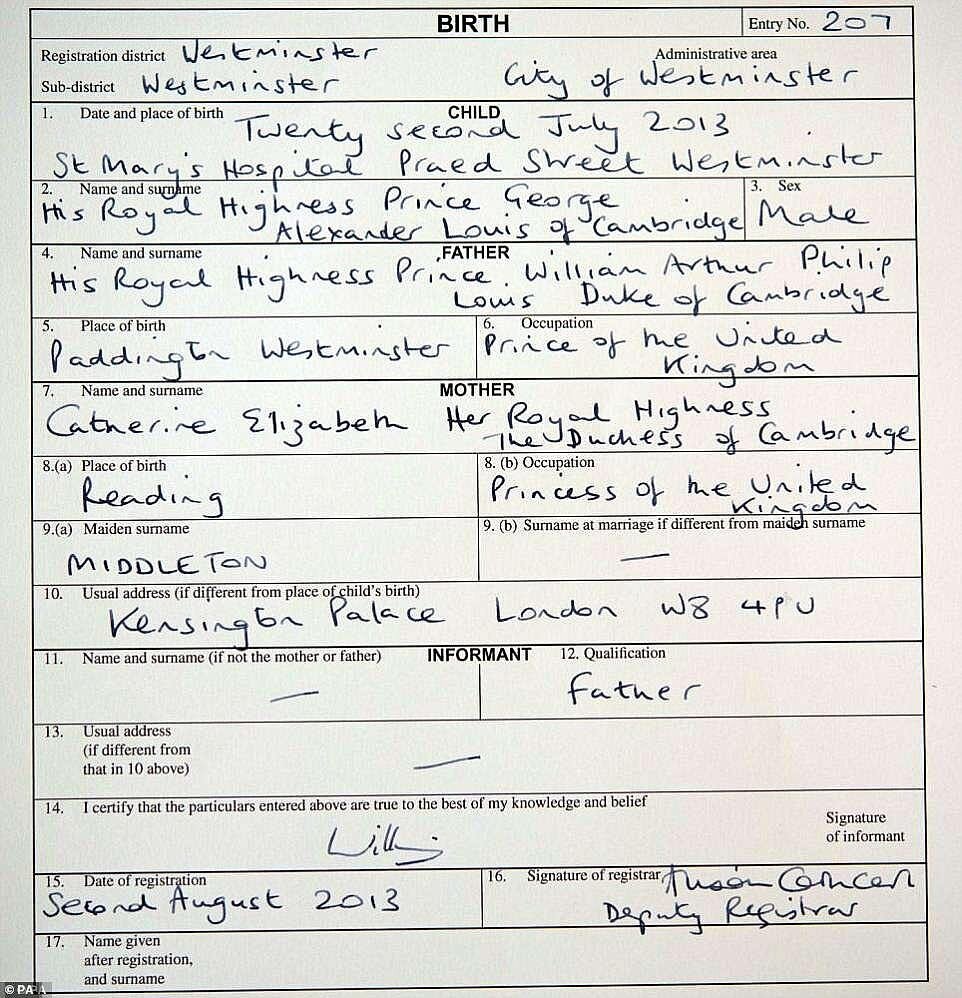 BIRTH
Entry No. 207
Registration district Westminster
Administrative area
Sub-district Westminster
City of Westminster
1. Date and place of birth
CHILD
Twenty second July 2013
St Mary's Hospital Praed Street Westminster
2. Name and surname
His Royal Highness Prince George
Alexander Louis of Cambridge
3. Sex
Male
4. Name and surname
FATHER
His Royal Highness Prince William Arthur Philip
Louis Duke of Cambridge
5. Place of birth
Paddington Westminster
6. Occupation
Prince of the United
Kingdom
7. Name and surname
MOTHER
Catherine Elizabeth Her Royal Highness
The Duchess of Cambridge
8.(a) Place of birth
Reading
8. (b) Occupation
Princess of the United
Kingdom
9.(a) Maiden surname
MIDDLETON
9. (b) Surname at marriage if different from maiden surname
—
10. Usual address (if different from place of child's birth)
Kensington Palace London W8 4PU
11. Name and surname (if not the mother or father)
INFORMANT
—
12. Qualification
Father
13. Usual address
(if different from
that in 10 above)
—
14. I certify that the particulars entered above are true to the best of my knowledge and belief
William
Signature
of informant
15. Date of registration
Second August 2013
16. Signature of registrar
Deputy Registrar
17. Name given
after registration,
and surname
© PA